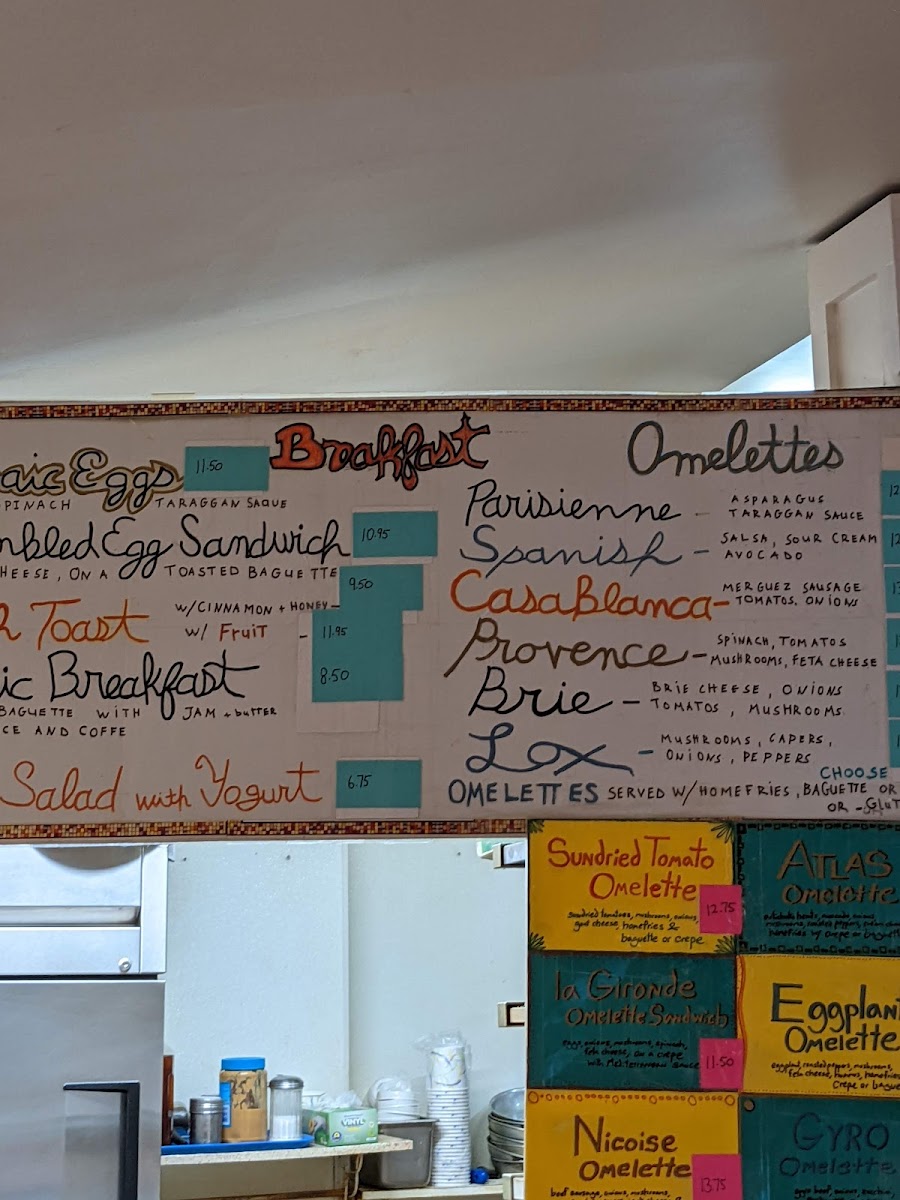 Breakfast
aic Eggs 11.50
SPINACH TARAGGAN SAQUE
mbled Egg Sandwich 10.95
HEESE, ON A TOASTED BAGUETTE
W/CINNAMON + HONEY - 9.50
h Toast W/ FRUIT - 11.95
ic Breakfast 8.50
BAGUETTE WITH JAM + butter
CE AND COFFE
Salad with Yogurt 6.75
Omelettes
Parisienne - ASPARAGUS
TARAGGAN SAUCE
Spanish - SALSA, SOUR CREAM
AVOCADO
CasaBlanca - MERGUEZ SAUSAGE
TOMATOS, ONIONS
Provence - SPINACH, TOMATOS
MUSHROOMS, FETA CHEESE
Brie - BRIE CHEESE, ONIONS
TOMATOS, MUSHROOMS
Lox - MUSHROOMS, CAPERS,
ONIONS, PEPPERS
CHOOSE
OMELETTES SERVED W/ HOMEFRIES, BAGUETTE OR
OR - GLUT
Sundried Tomato
Omelette
12.75
Sundried tomatoes, mushrooms, onions,
goat cheese, homefries &
baguette or crepe
ATLAS
Omelette
la Gironde
Omelette Sandwich
eggs, onions, mushrooms, spinach,
feta cheese, on a crepe
with Mediterranean sauce
11.50
Eggplant
Omelette
eggplant, roasted peppers, mushrooms,
feta cheese, hummus, homefries
Crepe or bague
Nicoise
Omelette
13.75
beef sausage, onions, mushrooms,
GYRO
Omelette
VINYL